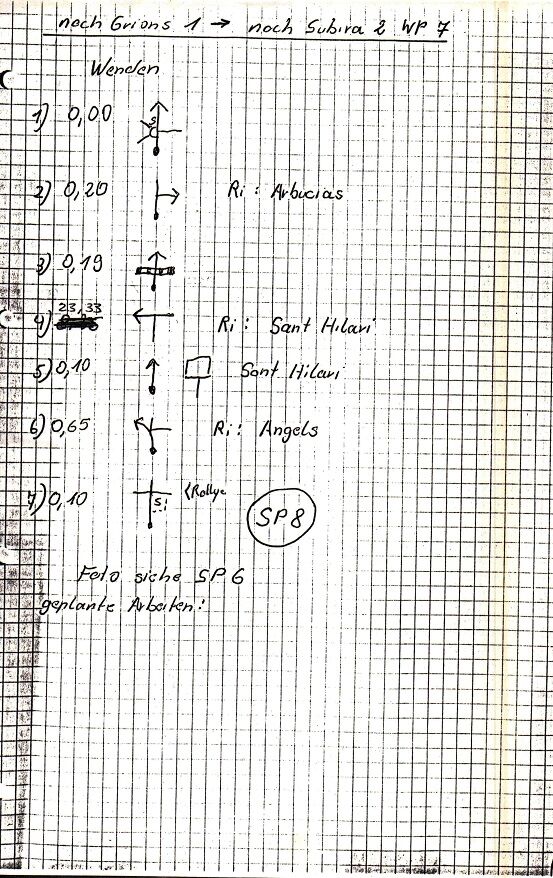 nach Grions 1 → nach Subira 2 WP 7
Wenden
1) 0,00 S
2) 0,20 Ri: Arbucias
3) 0,19
4) 23,33 Ri: Sant Hilari
5) 0,10 Sant Hilari
6) 0,65 Ri: Angels
7) 0,10 S <Rallye
SP8
Foto siehe SP6
geplante Arbeiten: